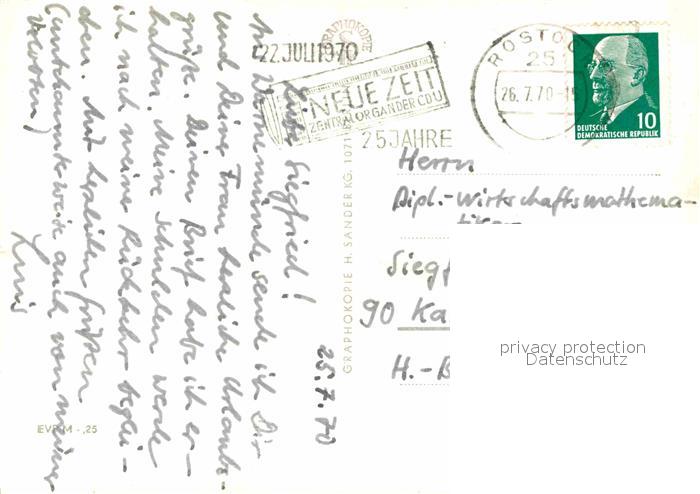 22.JULI1970
NEUE ZEIT
ZENTRALORGAN DER CDU
25 JAHRE
ROSTOCK
25
26.7.70-15
10
DEUTSCHE
DEMOKRATISCHE REPUBLIK
Herrn
Dipl.-Wirtschaftsmathema-
Siegf
90 Ka
H.-B
privacy protection
Datenschutz
GRAPHOKOPIE
GRAPHOKOPIE H. SANDER KG, 1071
25.7.70
Lieber Siegfried!
Aus Warnemünde sende ich Dir
und Deiner Frau herzliche Urlaubs-
grüße. Deinen Brief habe ich er-
halten. Meine Schulden werde
ich nach meiner Rückkehr beglei-
chen. Mit herzlichen Grüßen
auch von meiner
EVP M -,25